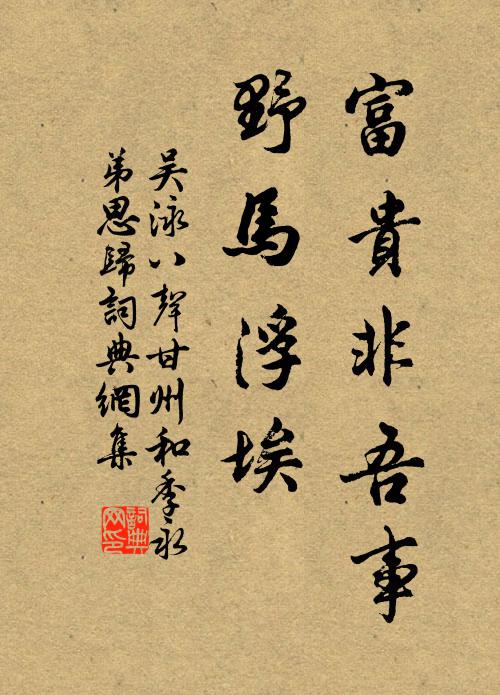 富貴非吾事
野馬浮埃
吴泳八聲甘州和季永
弟思歸詞典網集
詞典
网印